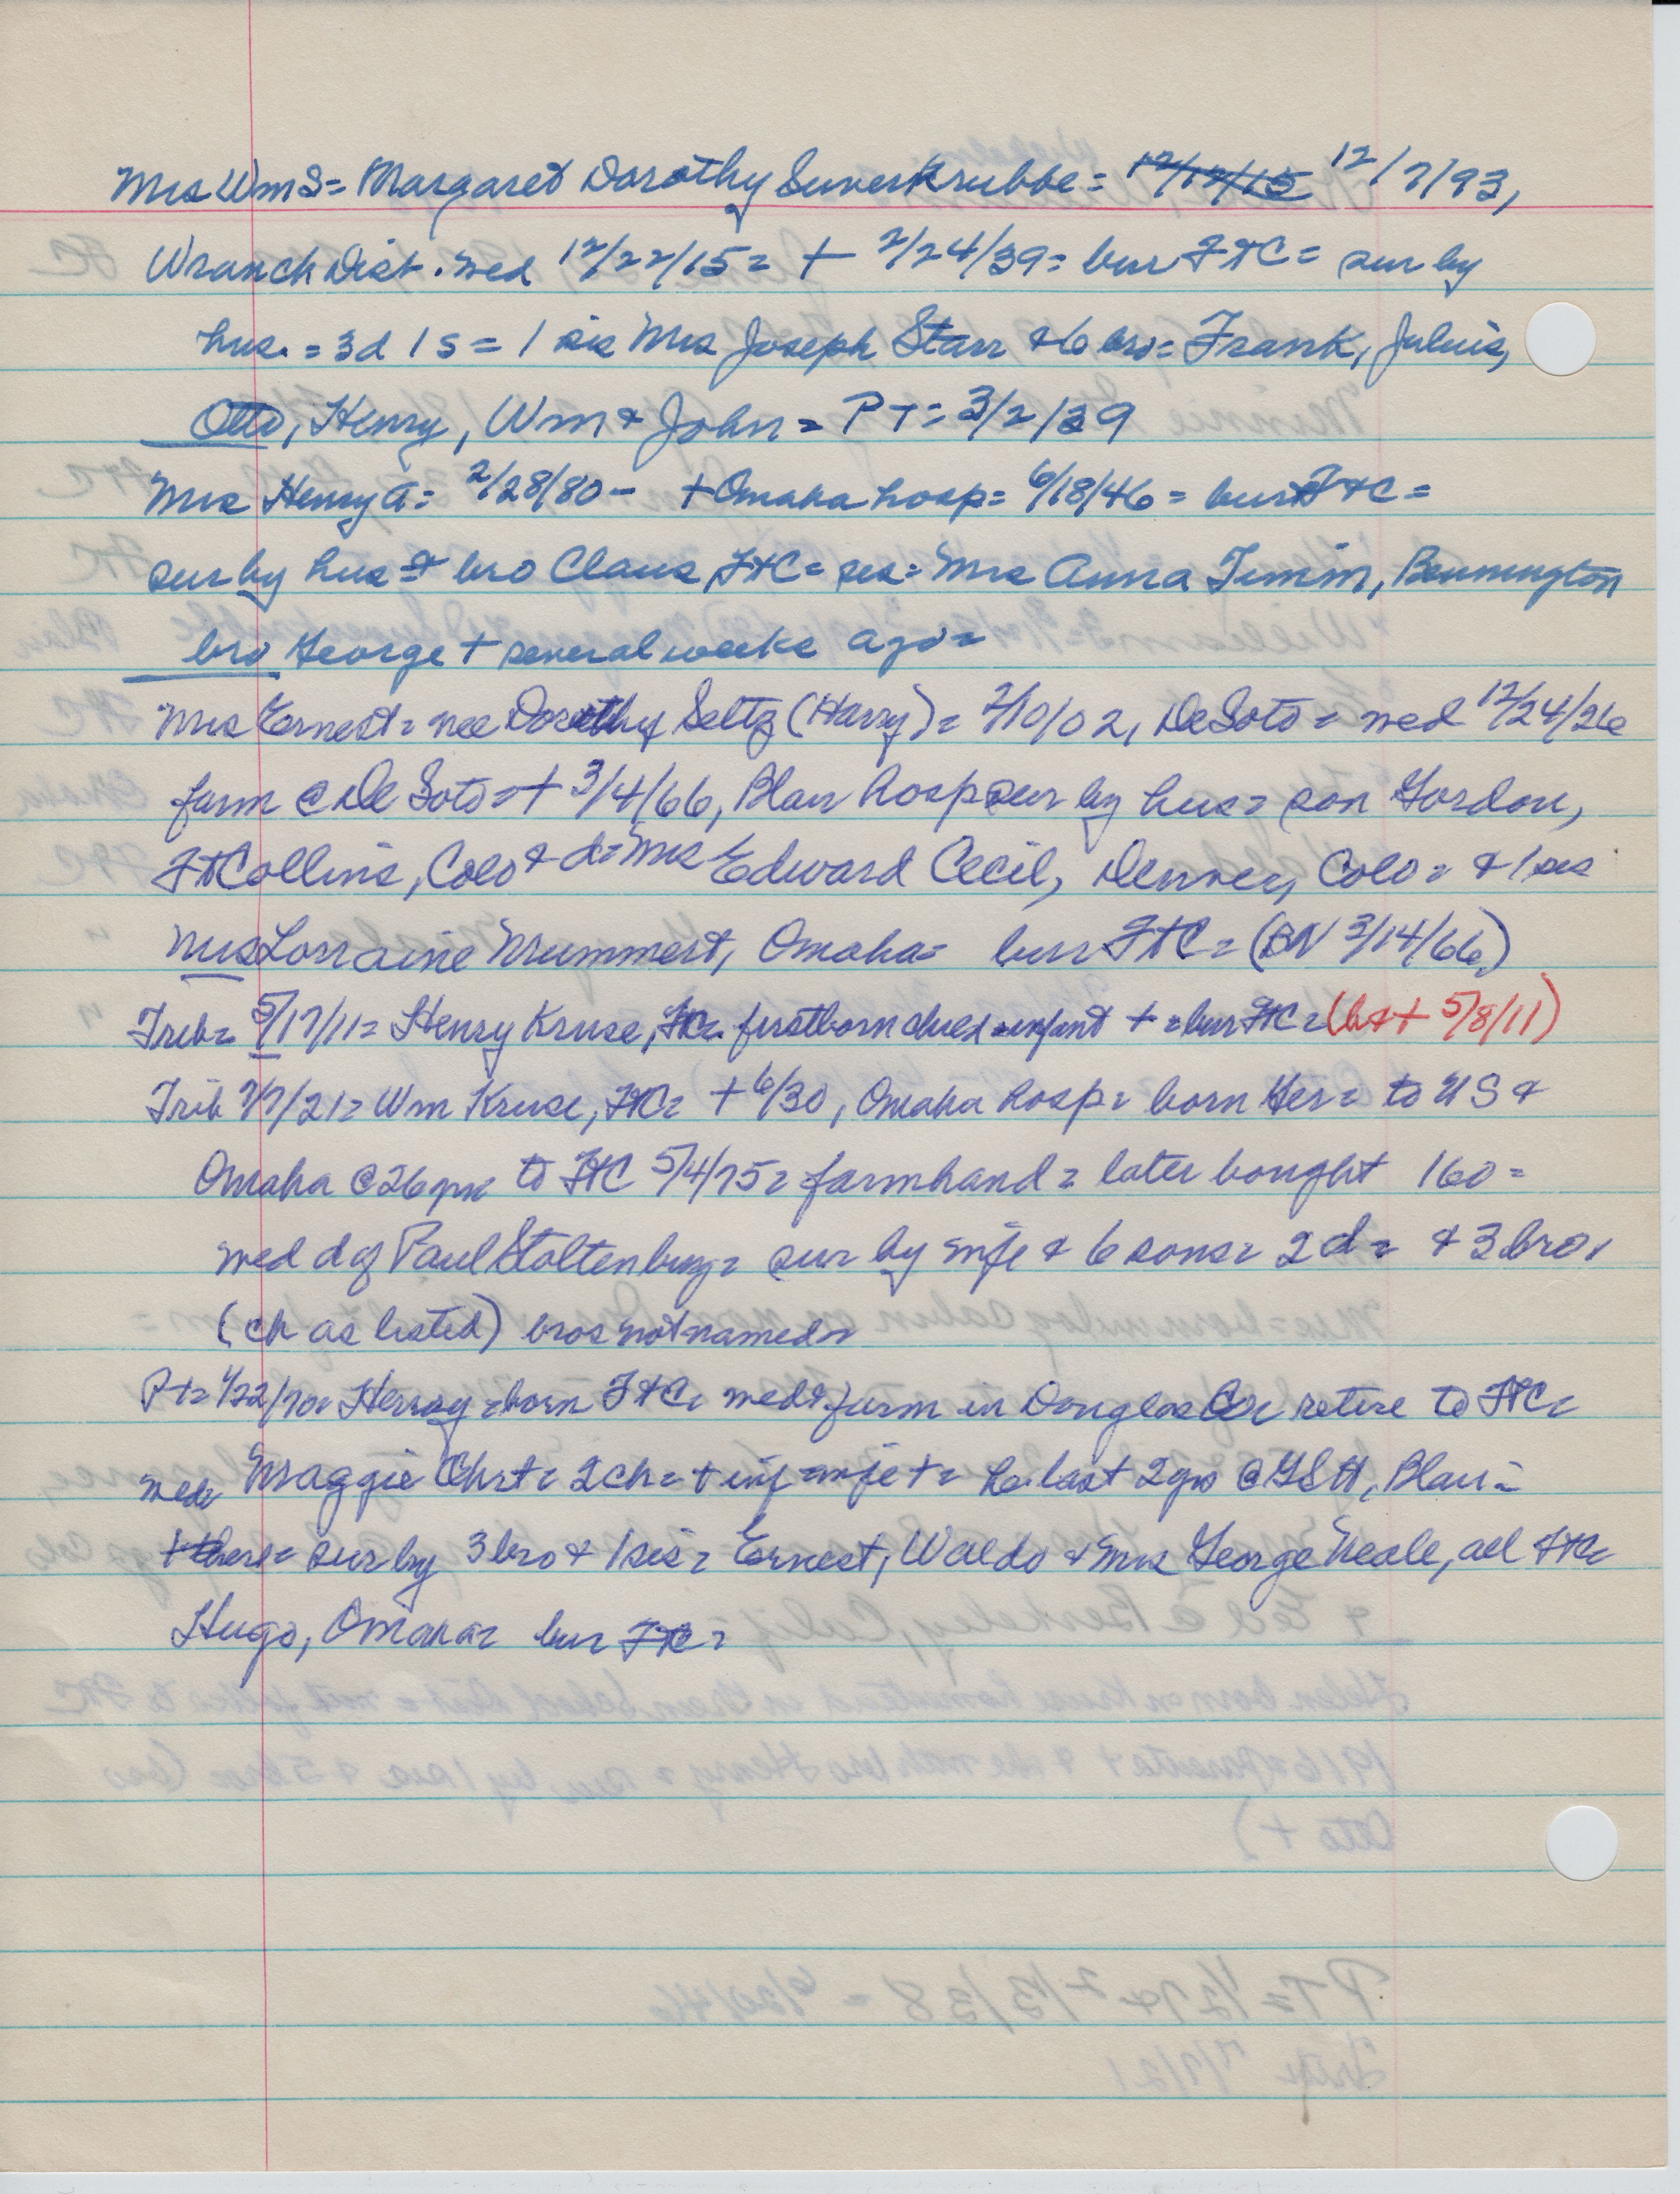 Mrs Wm S= Margaret Dorothy Suverkrubbe= 12/12/15 12/7/93,
Wranch Dist. wed 12/22/15= + 2/24/39= bur FtC= sur by
hus. = 3d 1s = 1 sis Mrs Joseph Starr & 6 bro= Frank, Julius,
Otto, Henry, Wm & John = PT= 3/2/39
Mrs Henry A= 2/28/80 - + Omaha hosp= 6/18/46 = bur FtC =
sur by hus & bro Claus, FtC= sis= Mrs Anna Timm, Bennington
bro George + several weeks ago=
Mrs Ernest= nee Dorothy Seltz (Harry)= 2/10/02, DeSoto = wed 12/24/26
farm @ De Soto= + 3/4/66, Blair hosp sur by hus= son Gordon,
Ft Collins, Colo & d= Mrs Edward Cecil, Denver, Colo= & 1 sis
Mrs Lorraine Mummert, Omaha= bur FtC= (BN 3/14/66)
Trib= 5/17/11= Henry Kruse, FtC= firstborn child = infant + = bur FtC= (b & + 5/8/11)
Trib 7/7/21= Wm Kruse, FtC= + 6/30, Omaha hosp= born Ger= to US &
Omaha @ 26 yrs to FtC 5/4/75= farmhand= later bought 160=
wed d of Paul Stoltenburg= sur by wife & 6 sons= 2 d= & 3 bro,
(ch as listed) bros not named=
Pt= 1/22/70= Henry = born FtC= wed & farm in Douglas Co= retire to FtC=
wed= Maggie Chrt= 2 ch= + inf = wife + = he last 2 yrs @ GSH, Blair=
+ there= sur by 3 bro & 1 sis= Ernest, Waldo & Mrs George Neale, all FtC=
Hugo, Omaha= bur FtC=